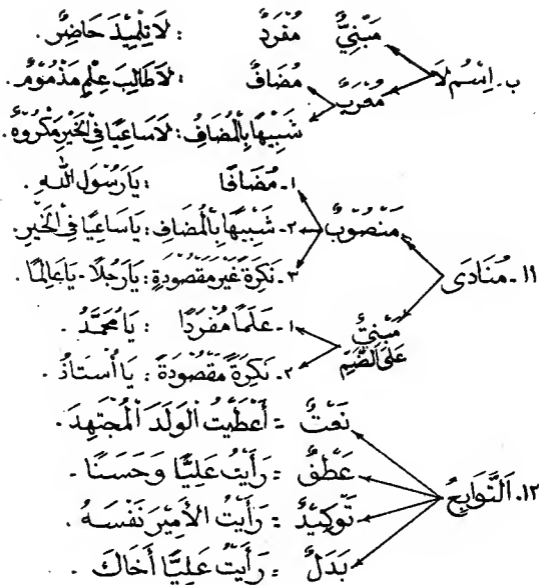 مَبْنِيٌّ مُفْرَدٌ : لَا تِلْمِيْذَ حَاضِرٌ.
ب. اِسْمُ لَا مُعْرَبٌ مُضَافٌ : لَا طَالِبَ عِلْمٍ مَذْمُوْمٌ.
شَبِيْهًا بِالْمُضَافِ : لَا سَاعِيًا فِى الْخَيْرِ مَكْرُوْهٌ.
١- مُضَافًا : يَا رَسُوْلَ اللهِ.
مَنْصُوْبٌ ٢- شَبِيْهًا بِالْمُضَافِ : يَا سَاعِيًا فِى الْخَيْرِ.
١١- مُنَادَى ٣- نَكِرَةً غَيْرَ مَقْصُوْدَةٍ : يَا رَجُلًا - يَا عَالِمًا.
مَبْنِيٌّ عَلَى الضَّمِّ ١- عَلَمًا مُفْرَدًا : يَا مُحَمَّدُ.
٢- نَكِرَةً مَقْصُوْدَةً : يَا أُسْتَاذُ.
نَعْتٌ = أَعْطَيْتُ الْوَلَدَ الْمُجْتَهِدَ.
عَطْفٌ = رَأَيْتُ عَلِيًّا وَحَسَنًا.
١٢. اَلتَّوَابِعُ تَوْكِيْدٌ = رَأَيْتُ الْأَمِيْرَ نَفْسَهُ.
بَدَلٌ = رَأَيْتُ عَلِيًّا أَخَاكَ.